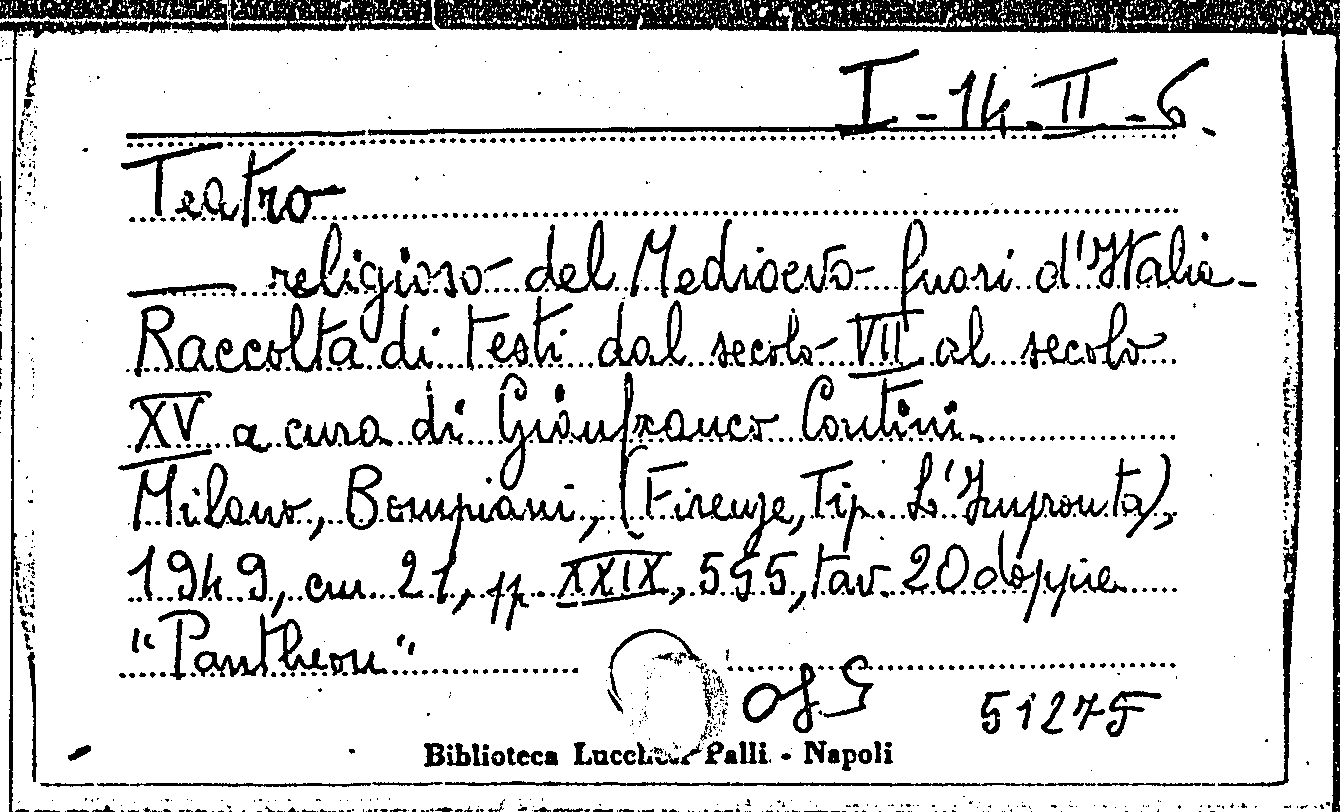 I - 14. II - 6.
Teatro
—— religioso del Medioevo fuori d'Italia -
Raccolta di testi dal secolo VII al secolo
XV a cura di Gianfranco Contini.
Milano, Bompiani, (Firenze, Tip. L'Impronta),
1949, cm 21, pp. XXIX, 555, tav. 20 doppie
"Pantheon"
51275
Biblioteca Lucchesi Palli - Napoli